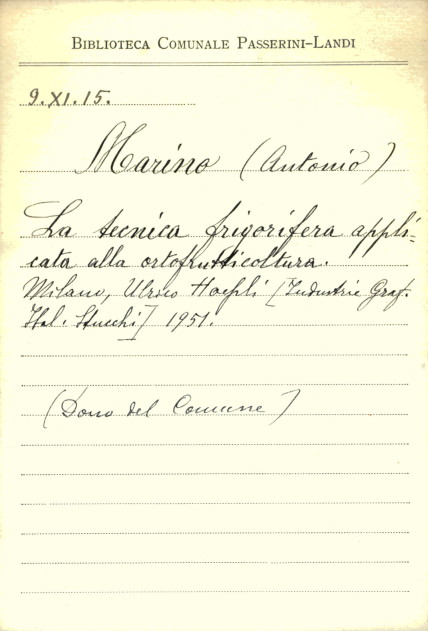 BIBLIOTECA COMUNALE PASSERINI-LANDI
9.XI.15.
Marino (Antonio)
La tecnica frigorifera appli-
cata alla ortofrutticoltura.
Milano, Ulrico Hoepli [Industrie Graf.
Ital. Stucchi] 1951.
(Dono del Comune)